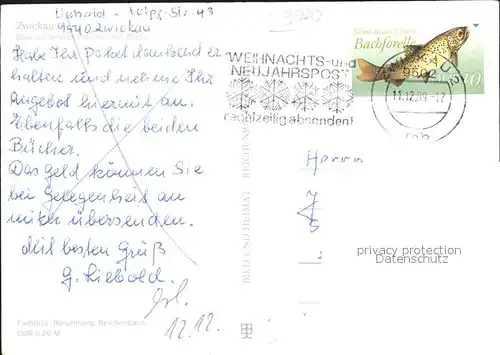 Liebold - Leipz. Str. 43
9540 Zwickau
Zwickau
Habe Ihr Paket dankend er
halten und nehme Ihr
Angebot hiermit an.
Ebenfalls die beiden
Bücher.
Das Geld können Sie
bei Gelegenheit an
mich übersenden.
Mit besten Gruß
G. Liebold.
12.12.
Farbfoto: Reichenbach
BILD UND HEIMAT REICHENBACH
WEIHNACHTS- und
NEUJAHRSPOST
rechtzeitig absenden!
Bachforelle
10
9502
11.12.89-12
Herrn
privacy protection
oldthing.de